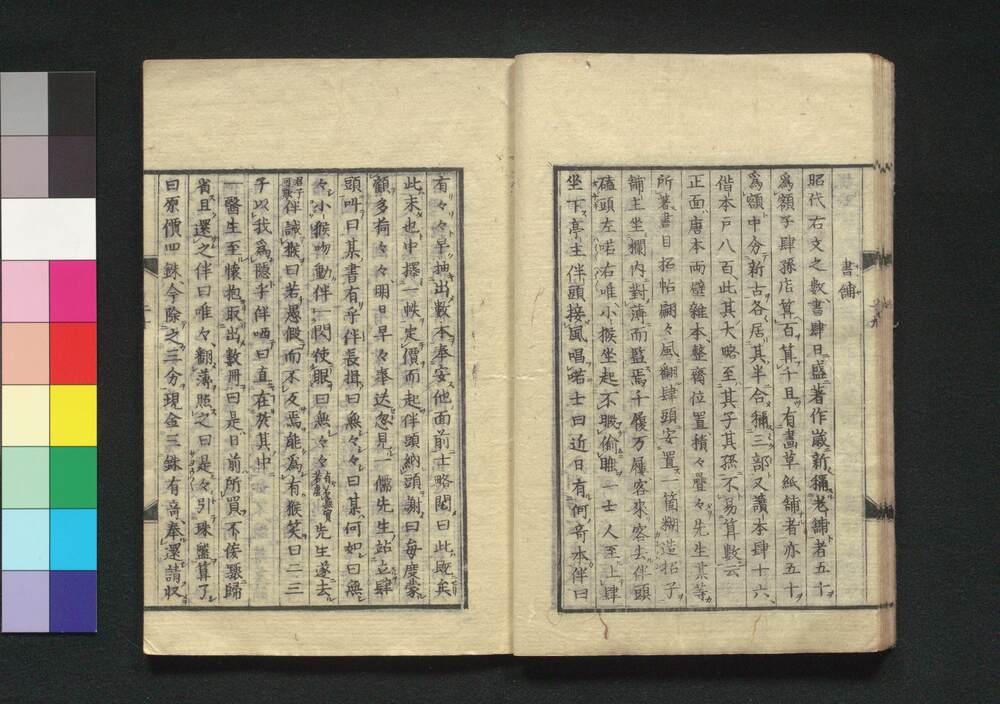 書舗
昭代右文之教書肆日盛著作歳新稱老舗者五十
爲額子肆孫店算百算千且有畫草紙舗者亦五十
爲額中分新古各居其半合稱三部又讀本肆十六
借本戸八百此其大略至其子其孫不易算數云
正面唐本両壁雜本整齊位置積々疊々先生某等
所著書目招帖翩々風翻肆頭安置一箇糊造招子
舗主坐欄内對薄而監焉千履万屨客來客去伴頭
磕頭左喏右唯小猴坐起不暇偸睢一士人至上肆
坐下亭主伴頭接風唱喏士曰近日有何奇本伴曰
有々々早抽出數本奉安他面前士略閲曰此既矣
此未也中擇一帙定價而起伴頭納頭謝曰毎度蒙
顧多荷々々明日早々奉送忽見一儒先生站立肆
頭呌曰某書有乎伴長揖曰無々々曰某何如曰無
々小猴吻動伴一閃使眼曰無々々 先生遂去
君子可欺伴誡猴曰若愚假而不反焉能爲有猴笑曰二三
子以我爲隱乎伴哂曰直在於其中
一醫生至懷抱取出數冊曰是日前所買不俟讓歸
省且還之伴曰唯々翻薄照之曰是々引珠盤算了
曰原價四銖今除之三分現金三銖有竒奉還請収